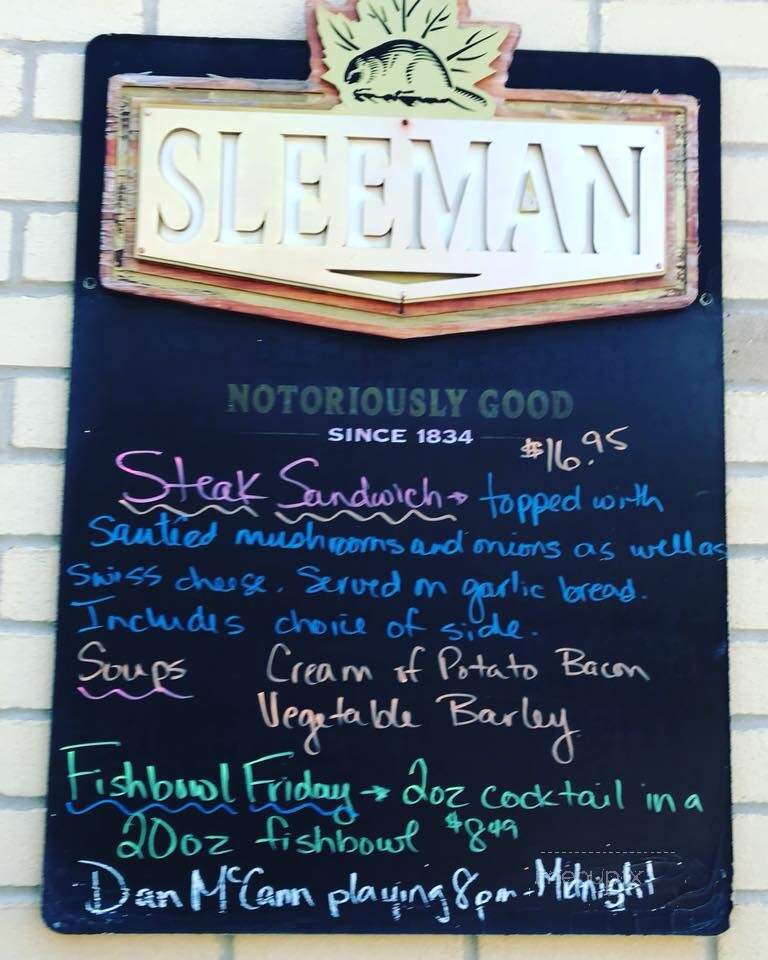 SLEEMAN
NOTORIOUSLY GOOD
SINCE 1834
$16.95
Steak Sandwich → topped with
Sautied mushrooms and onions as well as
Swiss cheese. Served on garlic bread.
Includes choice of side.
Soups Cream of Potato Bacon
Vegetable Barley
Fishbowl Friday → 2oz cocktail in a
20oz fishbowl $8.49
Dan McCann playing 8pm - Midnight
menupix